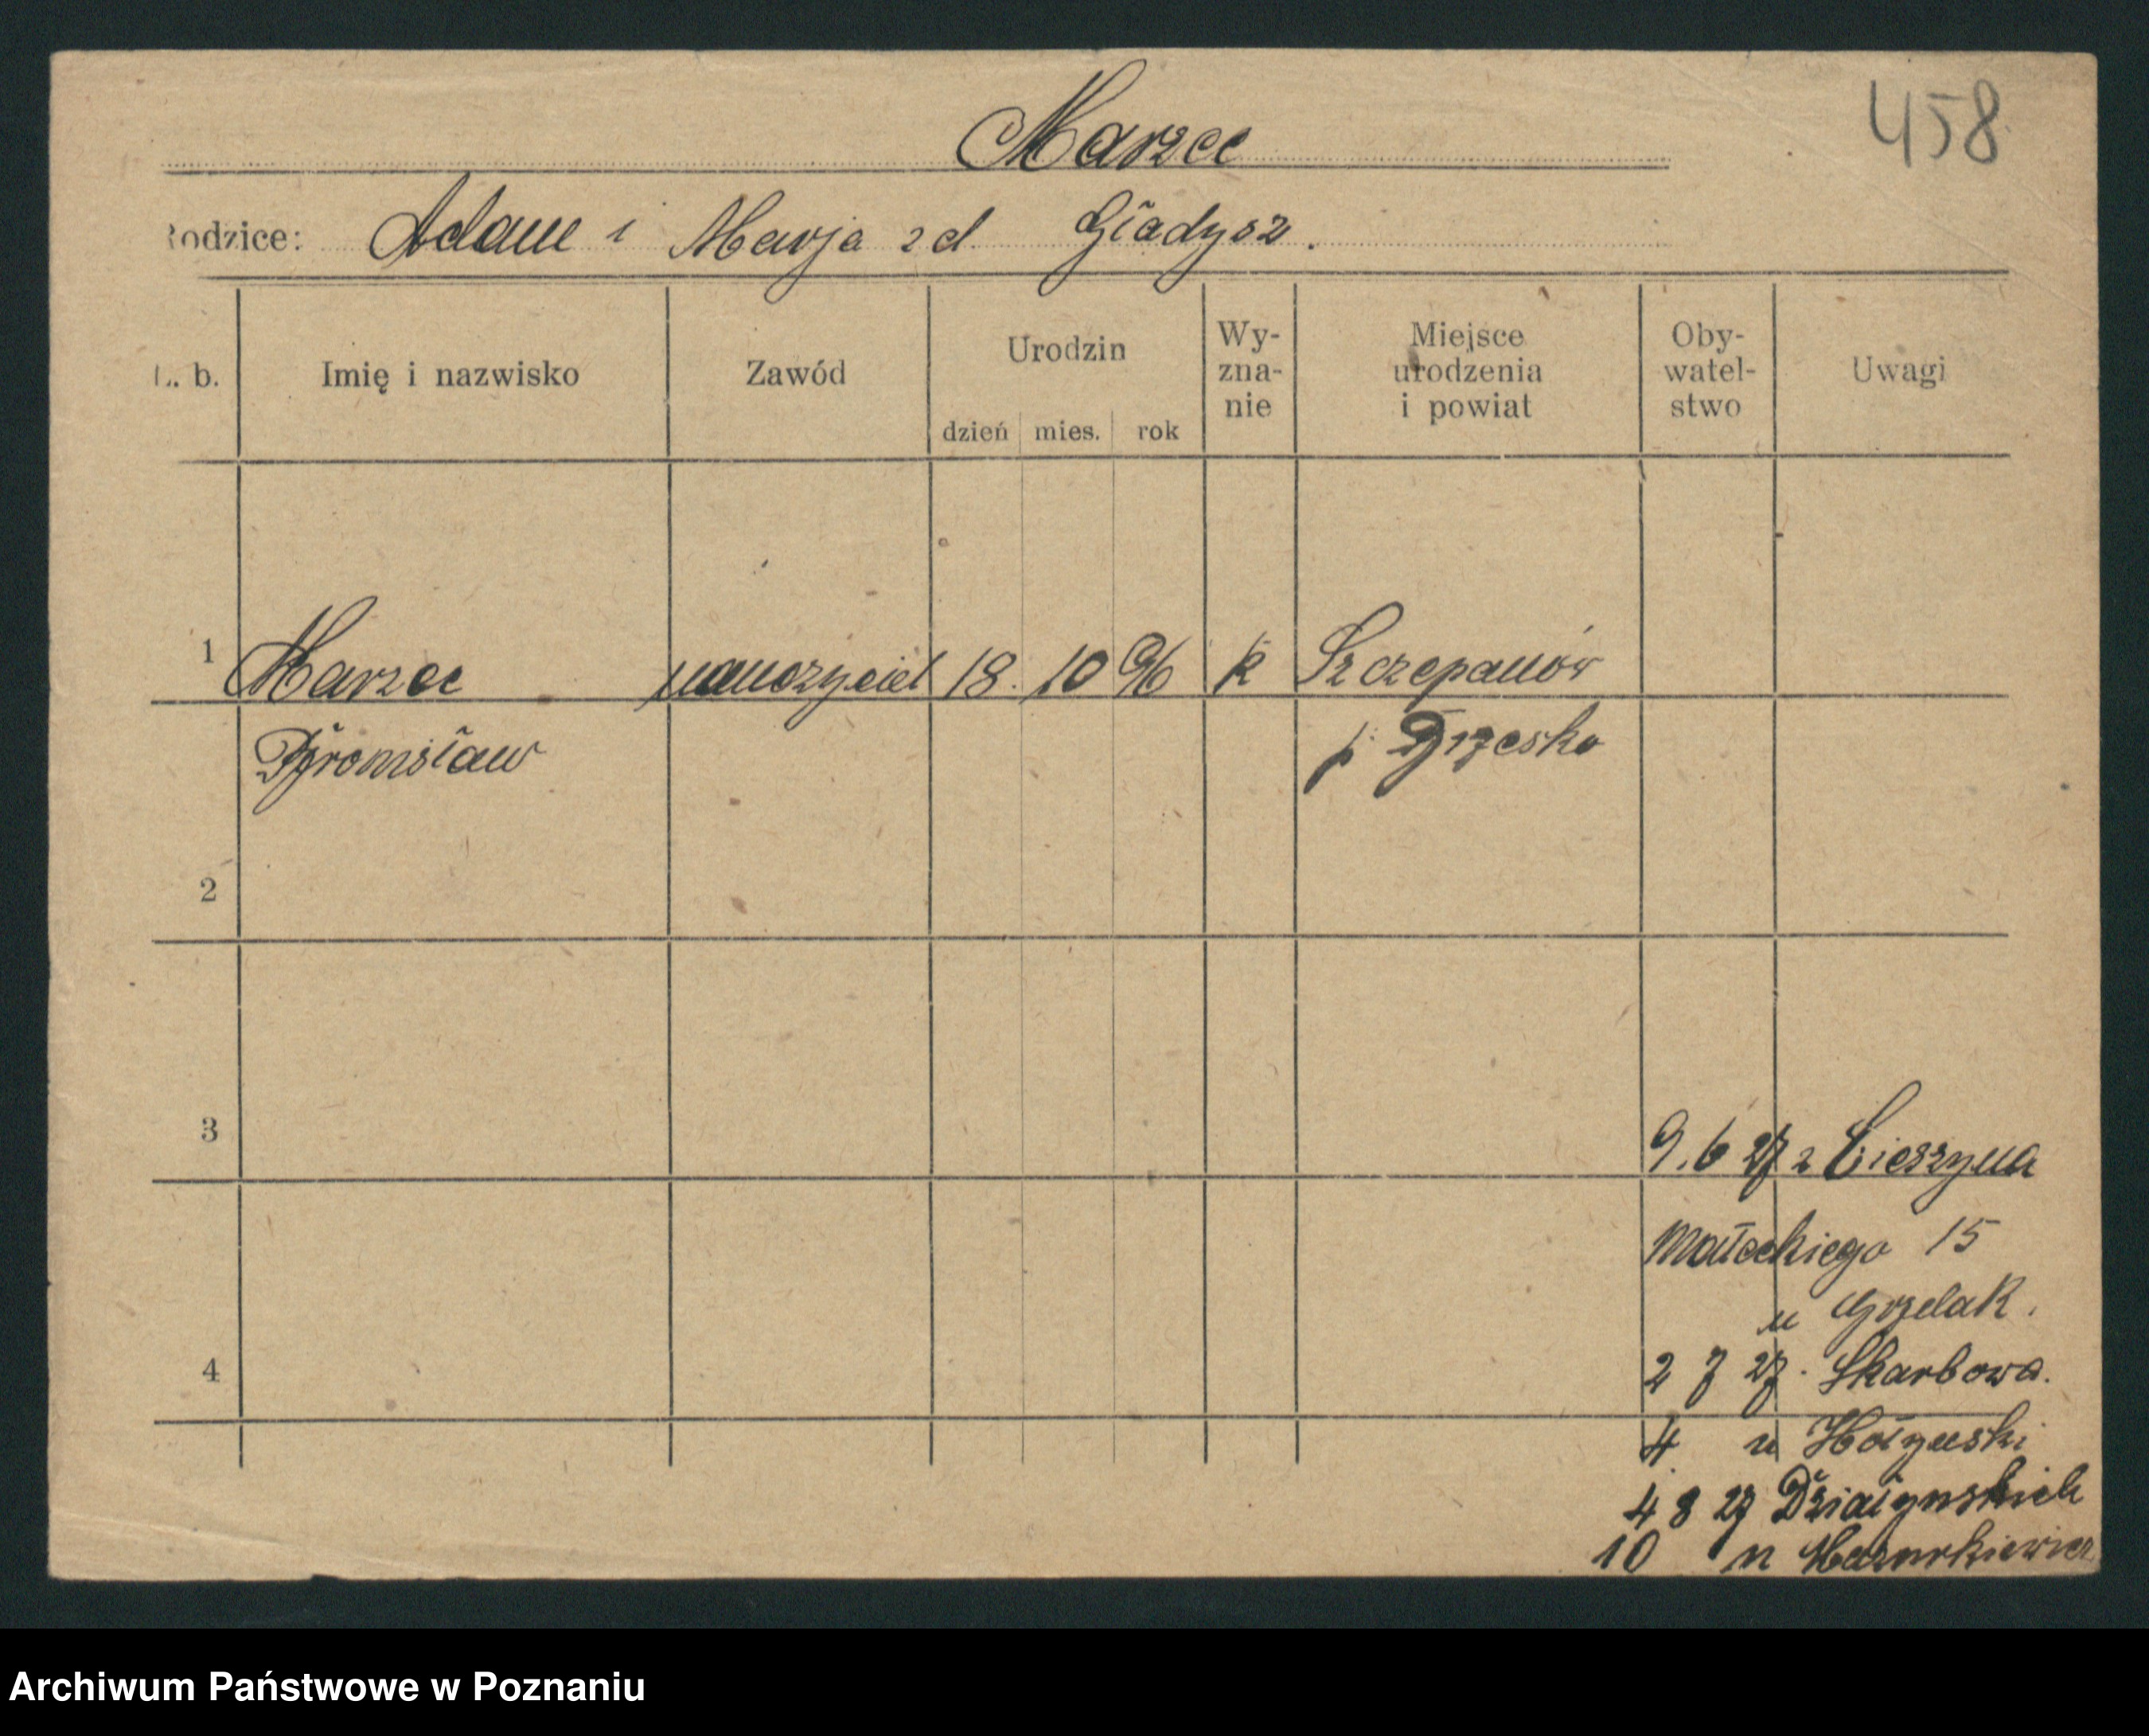 458
Marzec
Rodzice: Adam i Marja zd Gładysz.
L. b. Imię i nazwisko Zawód Urodzin dzień mies. rok Wy-zna-nie Miejsce urodzenia i powiat Oby-watel-stwo Uwagi
1 Marzec nauczyciel 18. 10 96 k Szczepanów
Bronisław p. Brzesko
2
3
9.6 27 z Cieszyna
Małeckiego 15
u Grzelak.
4
2 7 27. Skarbowa.
4 u Hołyński
4 8 27 Działyńskich
10 u Mazurkiewicz
Archiwum Państwowe w Poznaniu